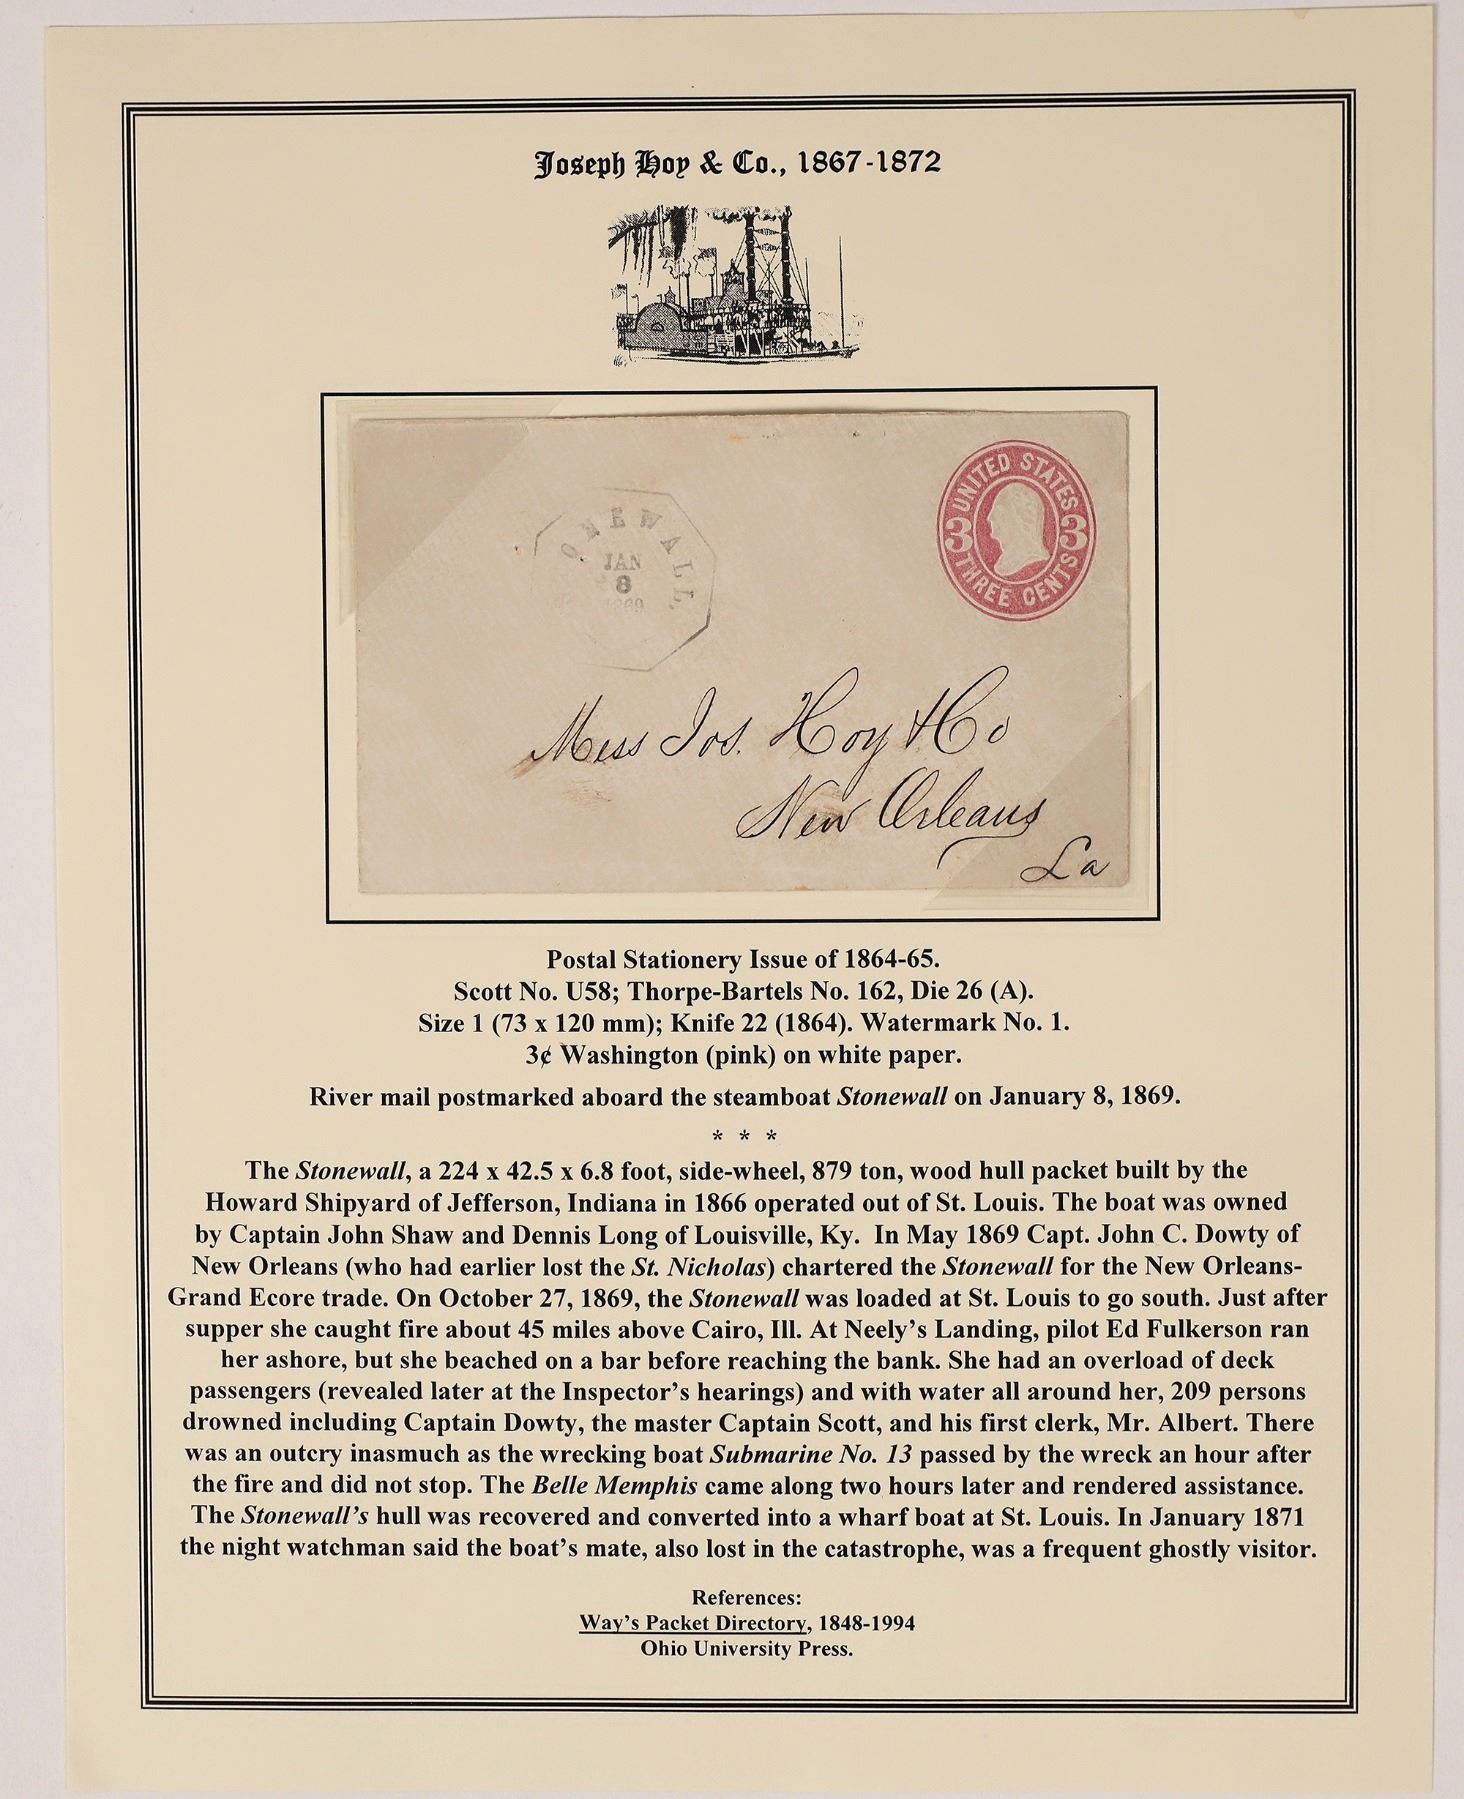 Joseph Hoy & Co., 1867-1872
UNITED STATES
3 3
THREE CENTS
ONEWALL.
JAN
8
1869
Mess Jos. Hoy & Co
New Orleans
La
Postal Stationery Issue of 1864-65.
Scott No. U58; Thorpe-Bartels No. 162, Die 26 (A).
Size 1 (73 x 120 mm); Knife 22 (1864). Watermark No. 1.
3¢ Washington (pink) on white paper.
River mail postmarked aboard the steamboat Stonewall on January 8, 1869.
* * *
The Stonewall, a 224 x 42.5 x 6.8 foot, side-wheel, 879 ton, wood hull packet built by the
Howard Shipyard of Jefferson, Indiana in 1866 operated out of St. Louis. The boat was owned
by Captain John Shaw and Dennis Long of Louisville, Ky. In May 1869 Capt. John C. Dowty of
New Orleans (who had earlier lost the St. Nicholas) chartered the Stonewall for the New Orleans-
Grand Ecore trade. On October 27, 1869, the Stonewall was loaded at St. Louis to go south. Just after
supper she caught fire about 45 miles above Cairo, Ill. At Neely's Landing, pilot Ed Fulkerson ran
her ashore, but she beached on a bar before reaching the bank. She had an overload of deck
passengers (revealed later at the Inspector's hearings) and with water all around her, 209 persons
drowned including Captain Dowty, the master Captain Scott, and his first clerk, Mr. Albert. There
was an outcry inasmuch as the wrecking boat Submarine No. 13 passed by the wreck an hour after
the fire and did not stop. The Belle Memphis came along two hours later and rendered assistance.
The Stonewall's hull was recovered and converted into a wharf boat at St. Louis. In January 1871
the night watchman said the boat's mate, also lost in the catastrophe, was a frequent ghostly visitor.
References:
Way's Packet Directory, 1848-1994
Ohio University Press.